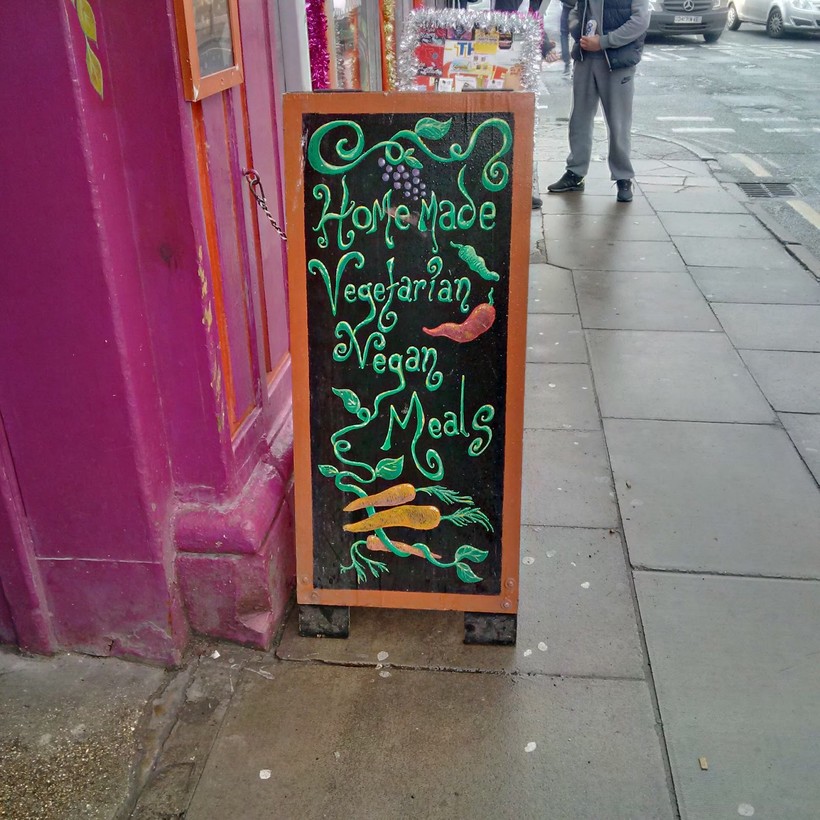 Home made
Vegetarian
Vegan
Meals